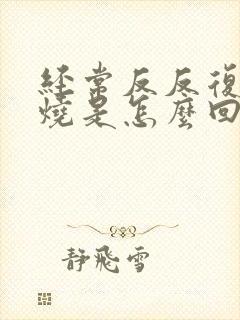 經常反反復
燒是怎麼回
靜飛雪